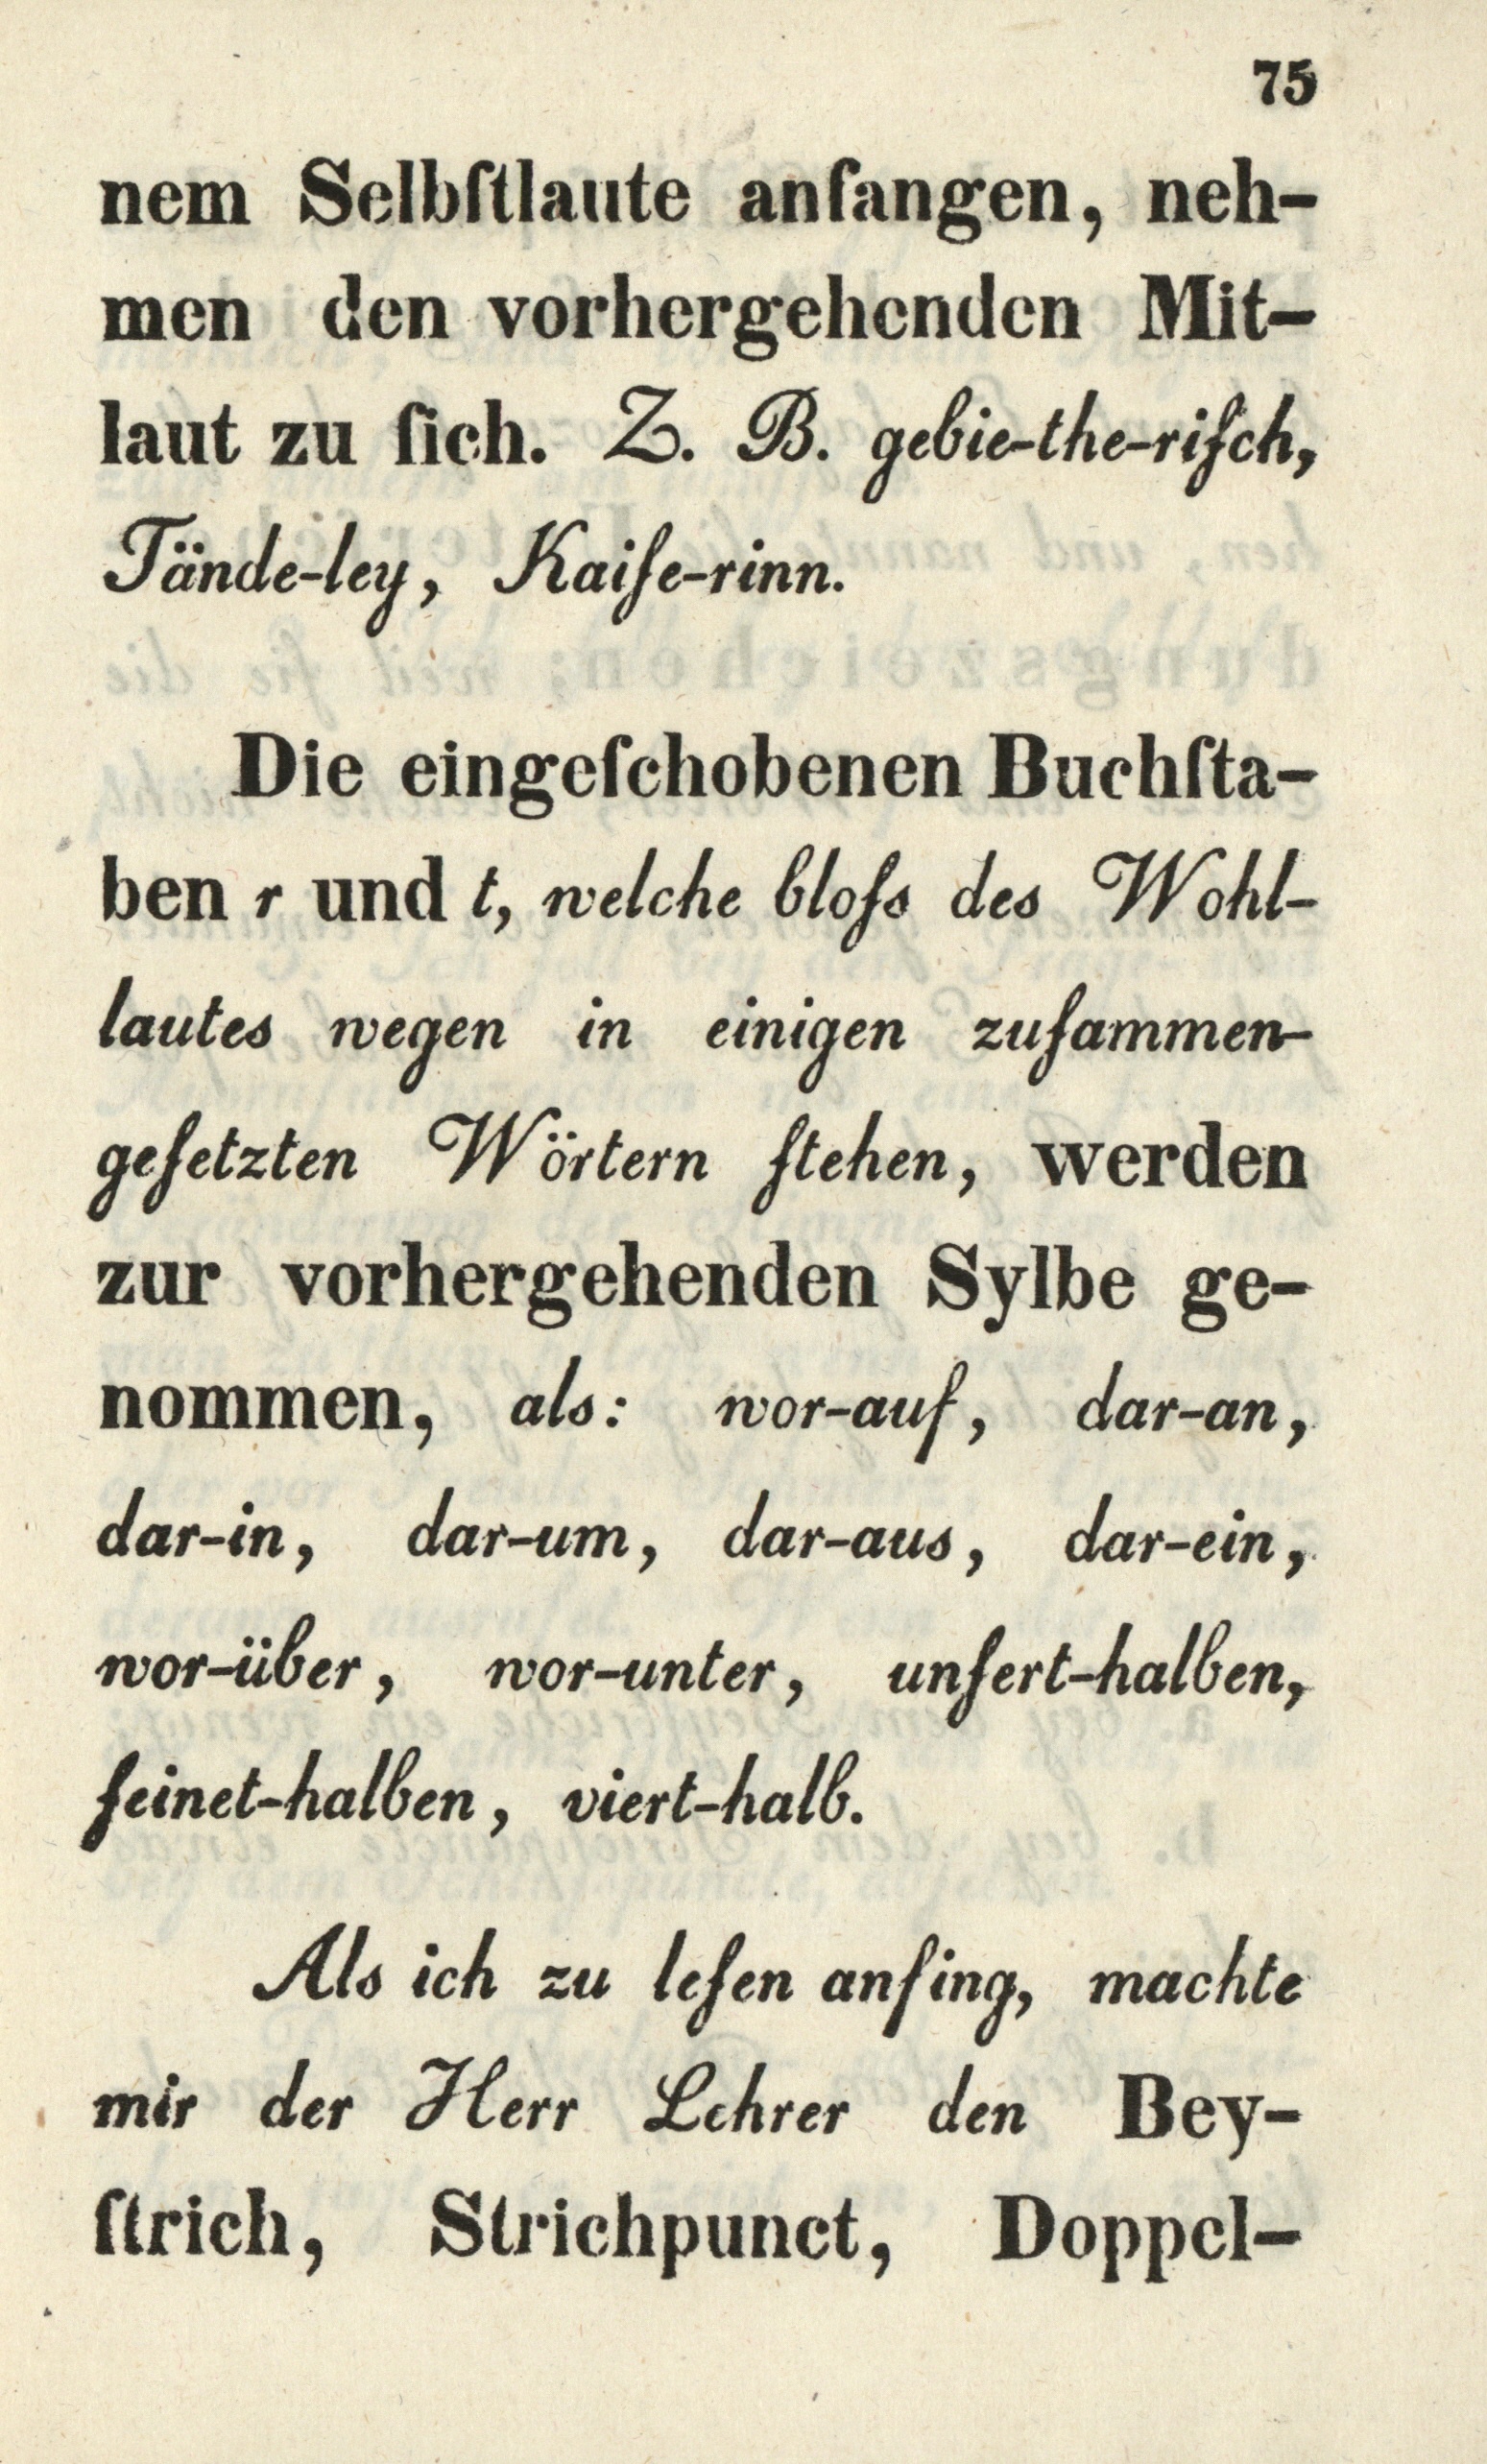 75
nem Selbſtlaute anfangen, neh-
men den vorhergehenden Mit-
laut zu ſich. Z. B. gebie-the-riſch,
Tände-ley, Kaiſe-rinn.
Die eingeſchobenen Buchſta-
ben r und t, welche bloſs des Wohl-
lautes wegen in einigen zuſammen-
geſetzten Wörtern ſtehen, werden
zur vorhergehenden Sylbe ge-
nommen, als: wor-auf, dar-an,
dar-in, dar-um, dar-aus, dar-ein,
wor-über, wor-unter, unſert-halben,
ſeinet-halben, viert-halb.
Als ich zu leſen anfing, machte
mir der Herr Lehrer den Bey-
ſtrich, Strichpunct, Doppel-